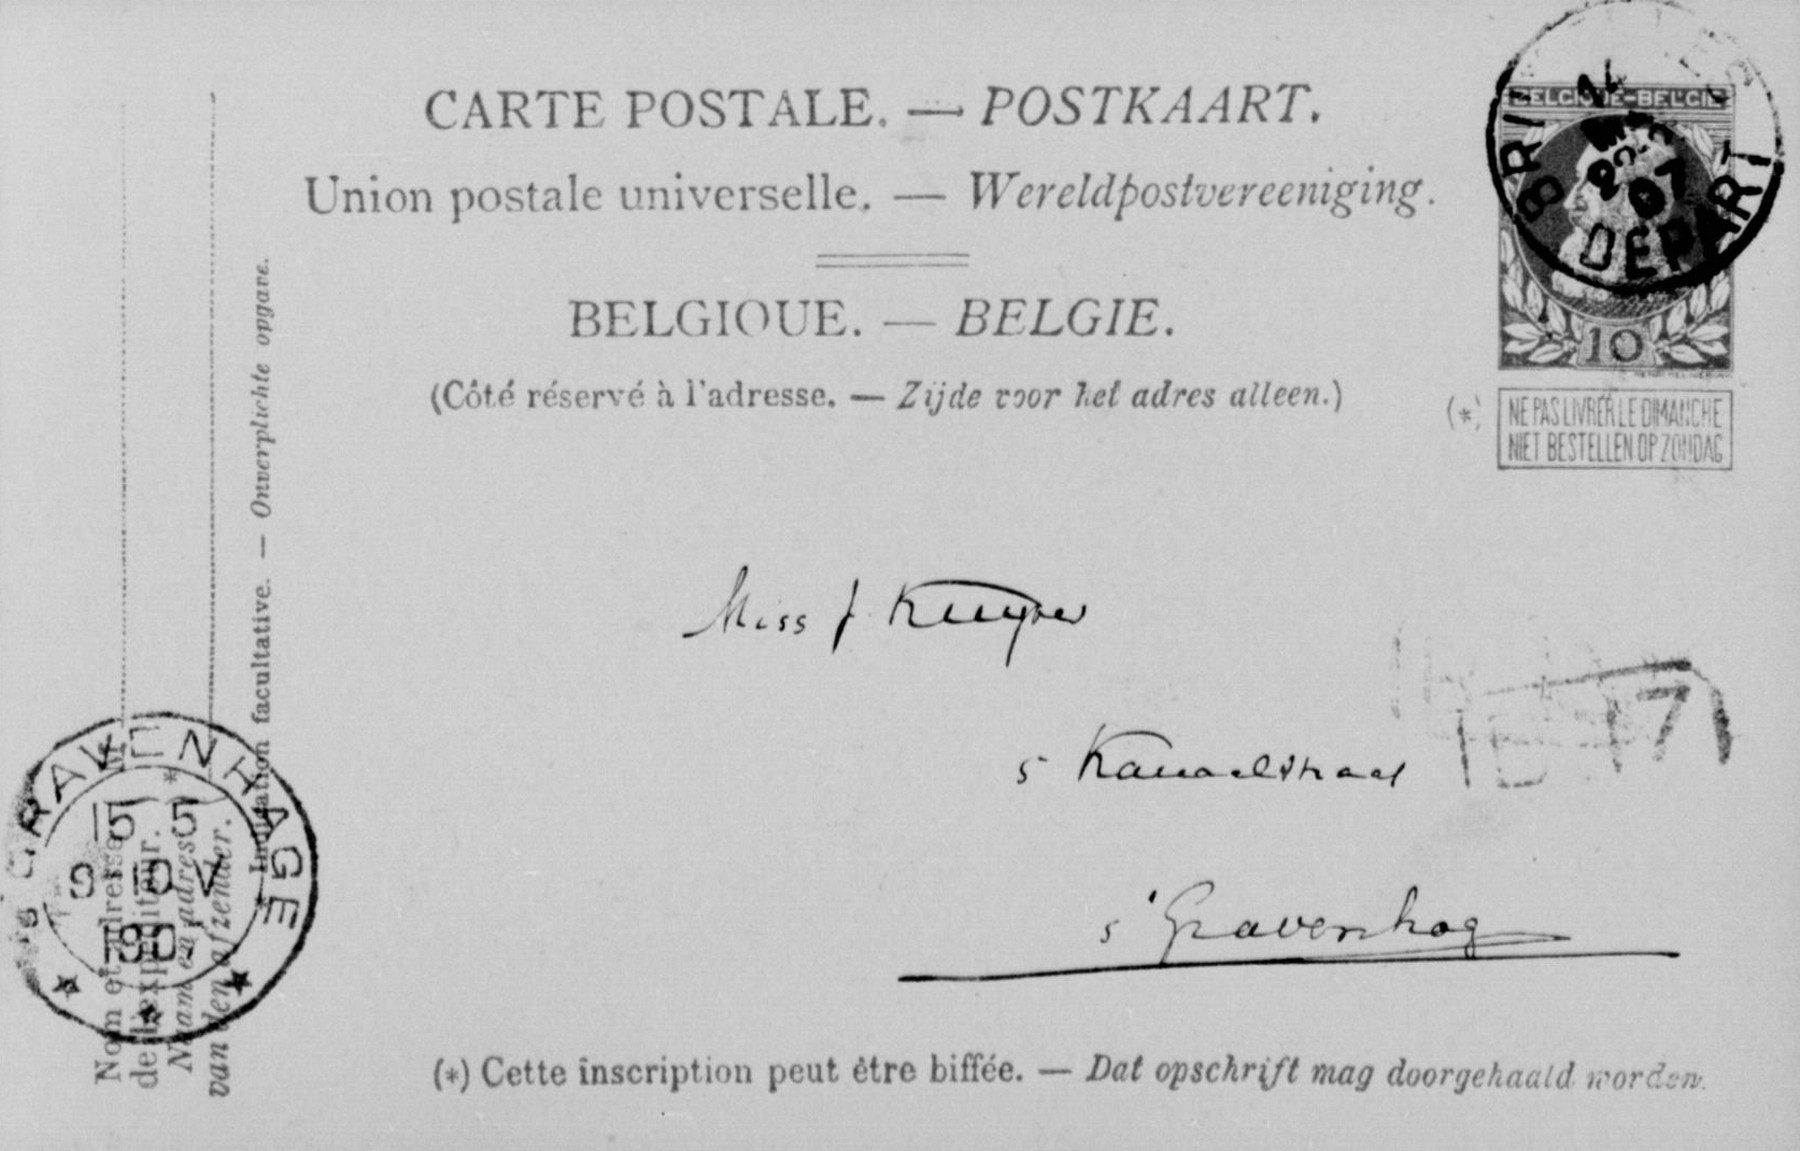 CARTE POSTALE. — POSTKAART.
Union postale universelle. — Wereldpostvereeniging.
BELGIQUE. — BELGIE.
(Côté réservé à l'adresse. — Zijde voor het adres alleen.)
BELGIQUE-BELGIE
10
DEPART
07
(*)
NE PAS LIVRER LE DIMANCHE
NIET BESTELLEN OP ZONDAG
Miss J. Kuyper
5 Kanaalstraat
s' Gravenhag
(*) Cette inscription peut être biffée. — Dat opschrift mag doorgehaald worden.
Indication facultative. — Onverplichte opgave.
Nom et adresse
de l'expéditeur.
Naam en adres
van den afzender.
'S GRAVENHAGE
15 5
8-10 V
1907